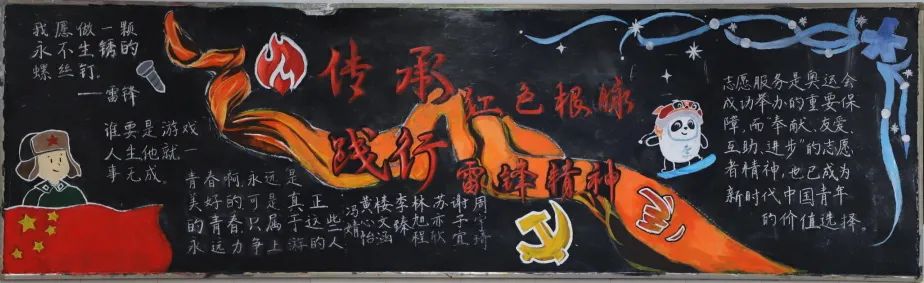 我愿做一颗
永不生锈的
螺丝钉。
——雷锋
谁要是游戏
人生他就一
事无成。
青春啊,永远是
美好的可是真正
的青春,只属于这些
永远力争上游的人
传承
红色根脉
践行
雷锋精神
冯婧
黄心怡
楼文涵
李臻
林旭程
苏亦欣
谢子宜
周宇琦
志愿服务是奥运会
成功举办的重要保
障,而“奉献、友爱、
互助、进步”的志愿
者精神,也已成为
新时代中国青年
的价值选择。